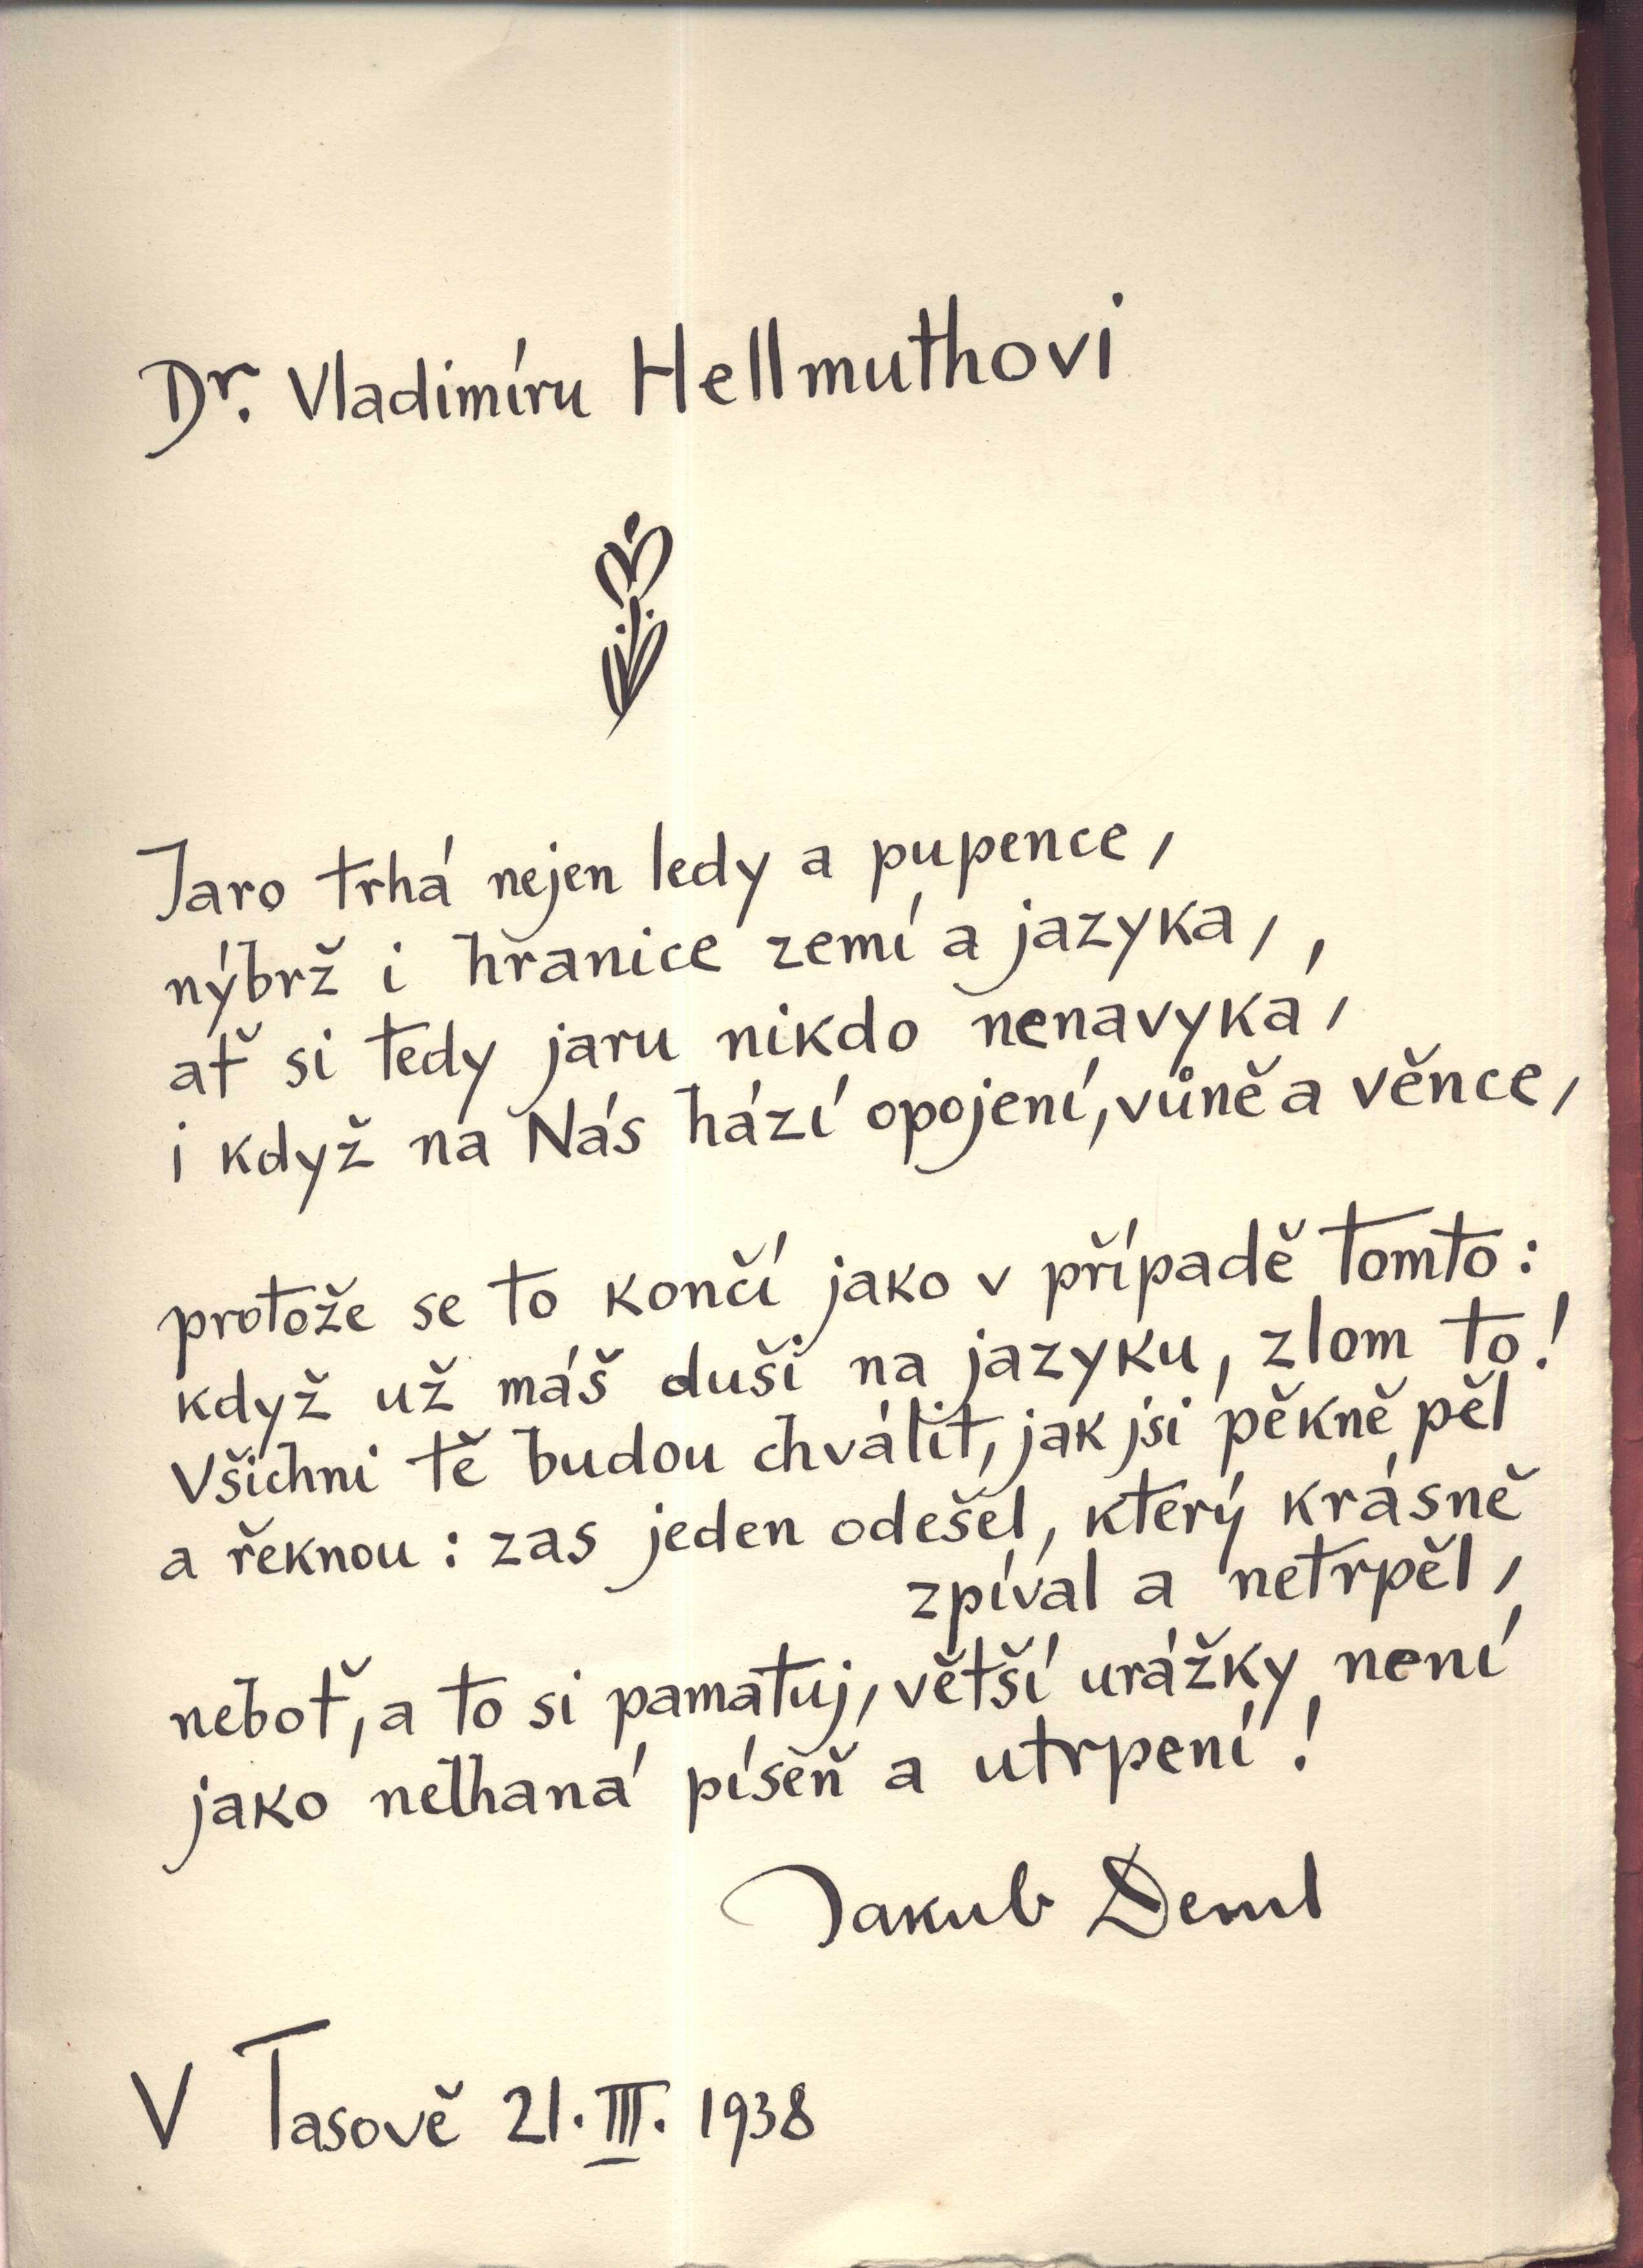 Dr. Vladimíru Hellmuthovi
Jaro trhá nejen ledy a pupence,
nýbrž i hranice zemí a jazyka,
ať si tedy jaru nikdo nenavyká,
i když na Nás hází opojení, vůně a věnce,
protože se to končí jako v případě tomto:
když už máš duši na jazyku, zlom to!
Všichni tě budou chválit, jak jsi pěkně pěl
a řeknou: zas jeden odešel, který krásně
zpíval a netrpěl,
neboť, a to si pamatuj, větší urážky není
jako nelhaná píseň a utrpení!
Jakub Deml
V Tasově 21. III. 1938